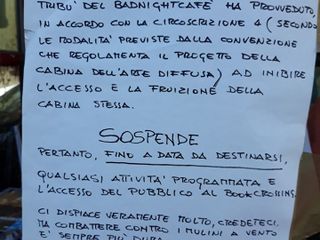 TRIBU' DEL BADNIGHTCAFÈ HA PROVVEDUTO,
IN ACCORDO CON LA CIRCOSCRIZIONE 4 (SECONDO
LE MODALITA' PREVISTE DALLA CONVENZIONE
CHE REGOLAMENTA IL PROGETTO DELLA
CABINA DELL'ARTE DIFFUSA) AD INIBIRE
L'ACCESSO E LA FRUIZIONE DELLA
CABINA STESSA.
SOSPENDE
PERTANTO, FINO A DATA DA DESTINARSI,
QUALSIASI ATTIVITA' PROGRAMMATA E
L'ACCESSO DEL PUBBLICO AL BOOKCROSSING.
CI DISPIACE VERAMENTE MOLTO, CREDETECI,
MA COMBATTERE CONTRO I MULINI A VENTO
E' SEMPRE PIU' DURA